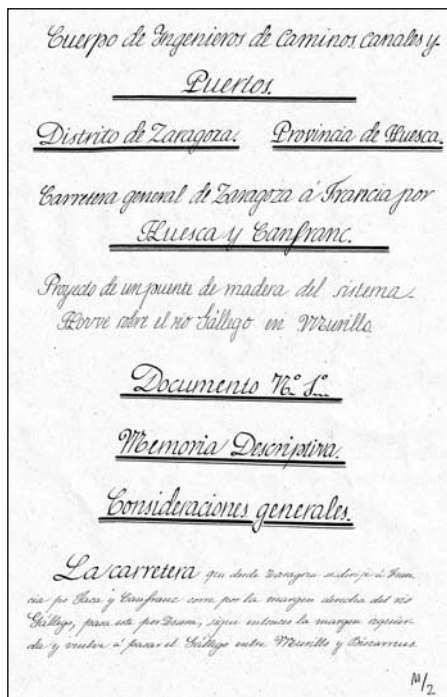 Cuerpo de Ingenieros de Caminos, canales y
Puertos.
Distrito de Zaragoza. Provincia de Huesca.
Carretera general de Zaragoza á Francia por
Huesca y Canfranc.
Proyecto de un puente de madera del sistema
Howe sobre el rio Gállego en Murillo.
Documento Nº 1º
Memoria Descriptiva.
Consideraciones generales.
La carretera que desde Zaragoza se dirije á Fran
cia por Jaca y Canfranc corre por la margen derecha del rio
Gállego, pasa este por sigue entonces la margen izquier
da y vuelve á pasar el Gállego entre Murillo y Biscarrues